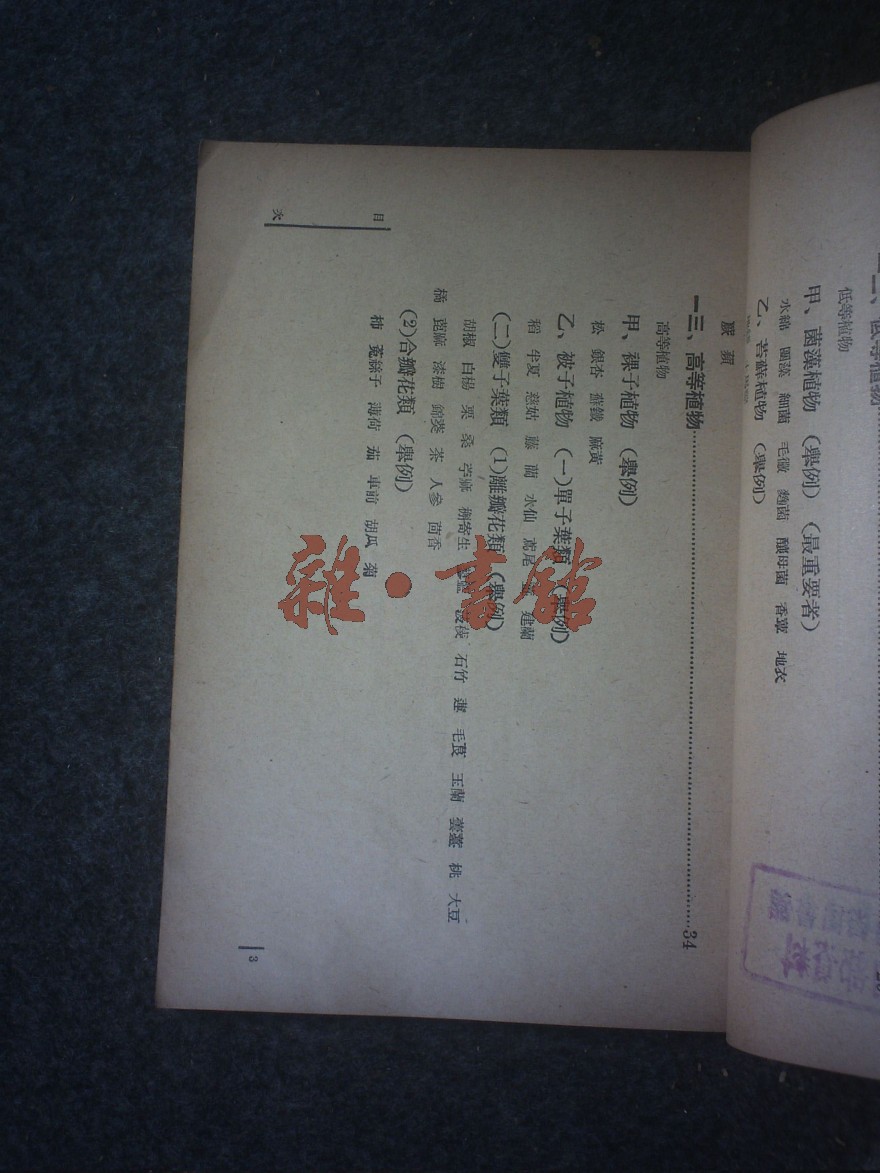 低等植物
甲、菌藻植物 (舉例) (最重要者)
水綿 團藻 細菌 毛黴 麴菌 釀母菌 香蕈 地衣
乙、苔蘚植物 (舉例)
蕨 蘋
一三、高等植物……34
高等植物
甲、裸子植物 (舉例)
松 銀杏 蘇鐵 麻黃
乙、被子植物 (一)單子葉類 (舉例)
稻 半夏 慈姑 藤 蘭 水仙 鳶尾 建蘭
(二)雙子葉類 (1)離瓣花類 (舉例)
胡椒 白楊 栗 桑 苧麻 槲寄生 菠薐 石竹 蓮 毛茛 玉蘭 蕓薹 桃 大豆
橘 蓖麻 漆樹 錦葵 茶 人參 茴香
(2)合瓣花類 (舉例)
柿 菟絲子 薄荷 茄 車前 胡瓜 菊
目
次
3
雜·書館